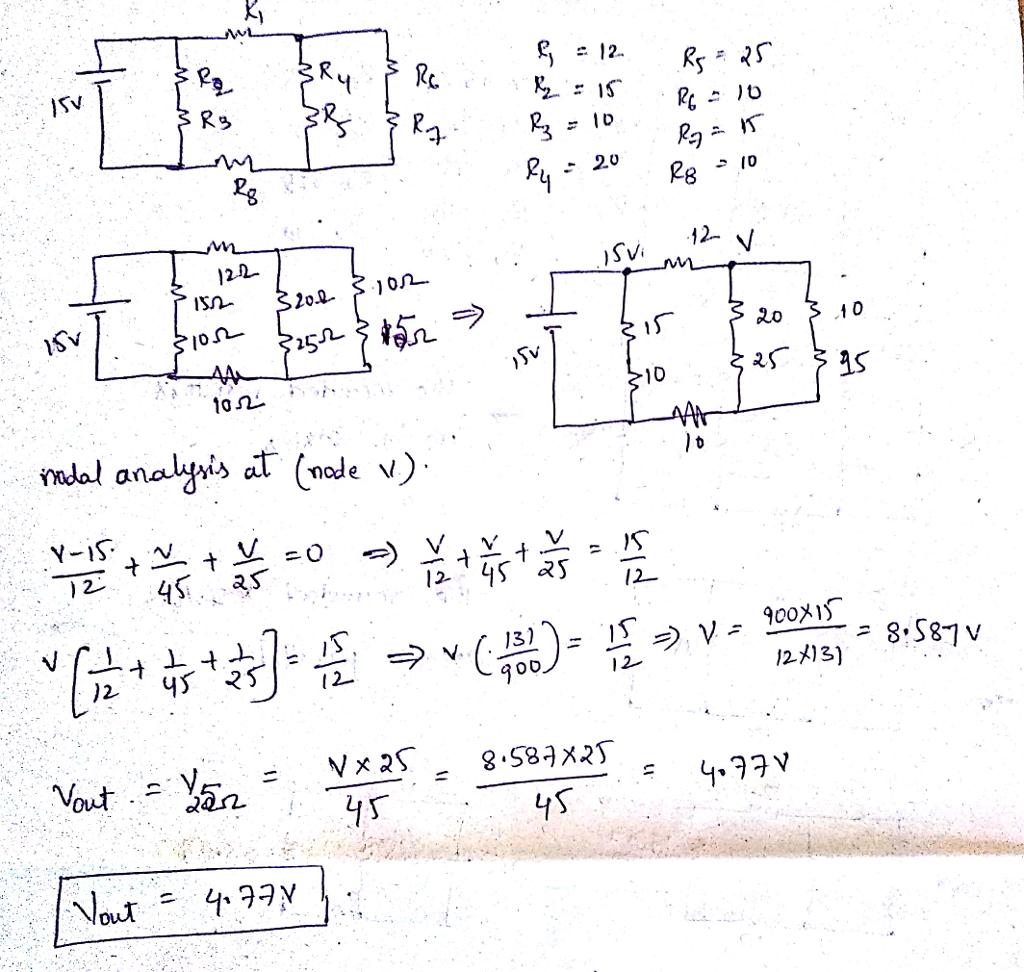 R1
15V R2 R4 R6
R3 R5 R7
R8
R1 = 12 R5 = 25
R2 = 15 R6 = 10
R3 = 10 R7 = 15
R4 = 20 R8 = 10
12Ω
15V 15Ω 20Ω 10Ω
10Ω 25Ω 15Ω
10Ω
⇒
15V 12 V
15V 15 20 10
10 25
10
nodal analysis at (node V).
V-15/12 + V/45 + V/25 = 0 ⇒ V/12 + V/45 + V/25 = 15/12
V [1/12 + 1/45 + 1/25] = 15/12 ⇒ V (131/900) = 15/12 ⇒ V = 900×15/12×131 = 8.587 V
Vout = V25Ω = V×25/45 = 8.587×25/45 = 4.77V
Vout = 4.77V